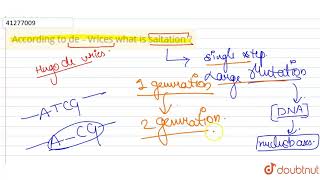 41277009
According to de - Wrices what is Saltation ?
Hugo de vries.
single step.
Large Mutation
1 generation
ATCG
DNA
A-CG
2 generation.
nucleobases.
doubtnut